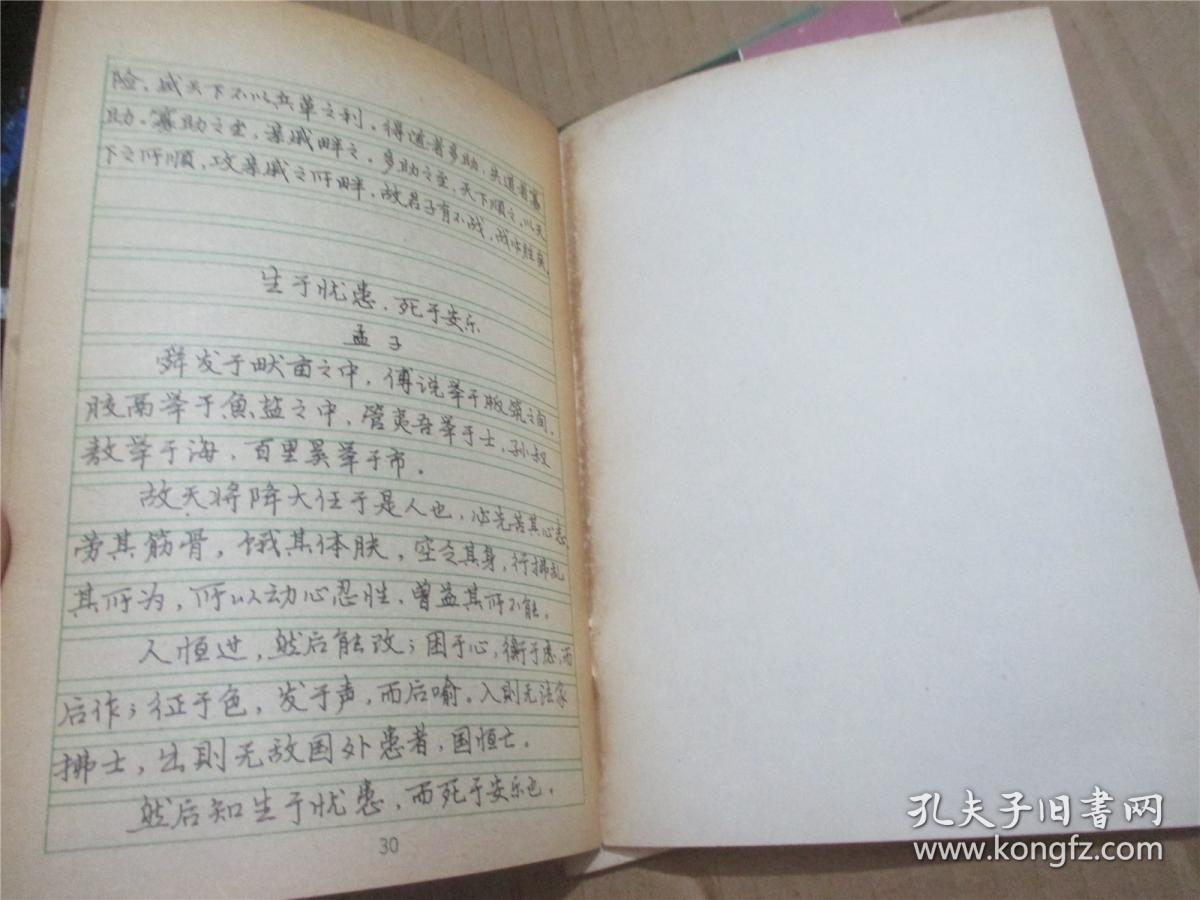 险，威天下不以兵革之利。得道者多助，失道者寡
助。寡助之至，亲戚畔之。多助之至，天下顺之。以天
下之所順，攻亲戚之所畔，故君子有不战，战必胜矣。
生于忧患，死于安乐
孟子
舜发于畎亩之中，傅说举于版筑之间，
胶鬲举于魚盐之中，管夷吾举于士，孙叔
敖举于海，百里奚举于市。
故天将降大任于是人也，必先苦其心志，
劳其筋骨，饿其体肤，空乏其身，行拂乱
其所为，所以动心忍性，曾益其所不能。
人恒过，然后能改；困于心，衡于虑，而
后作；征于色，发于声，而后喻。入則无法家
拂士，出則无敌国外患者，国恒亡。
然后知生于忧患，而死于安乐也。
30
孔夫子旧书网
www.kongfz.com